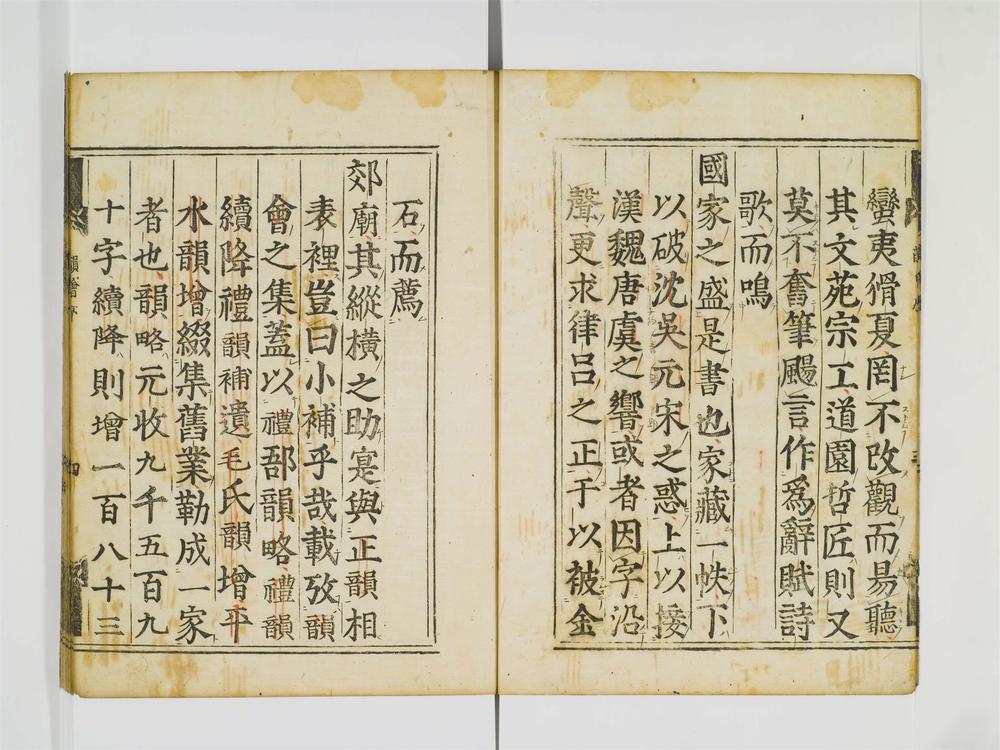 蠻夷猾夏罔不改觀而易聽
其文苑宗工道園哲匠則又
莫不奮筆颺言作爲辭賦詩
歌而鳴
國家之盛是書也家藏一帙下
以破沈吳元宋之惑上以接
漢魏唐虞之響或者因字㳂
聲更求律呂之正于以被金
石而薦
郊廟其縱橫之助寔與正韻相
表裡豈曰小補乎哉載攷韻
會之集蓋以禮部韻略禮韻
續降禮韻補遺毛氏韻增平
水韻增綴集舊業勒成一家
者也韻略元收九千五百九
十字續降則增一百八十三
韻會序
四